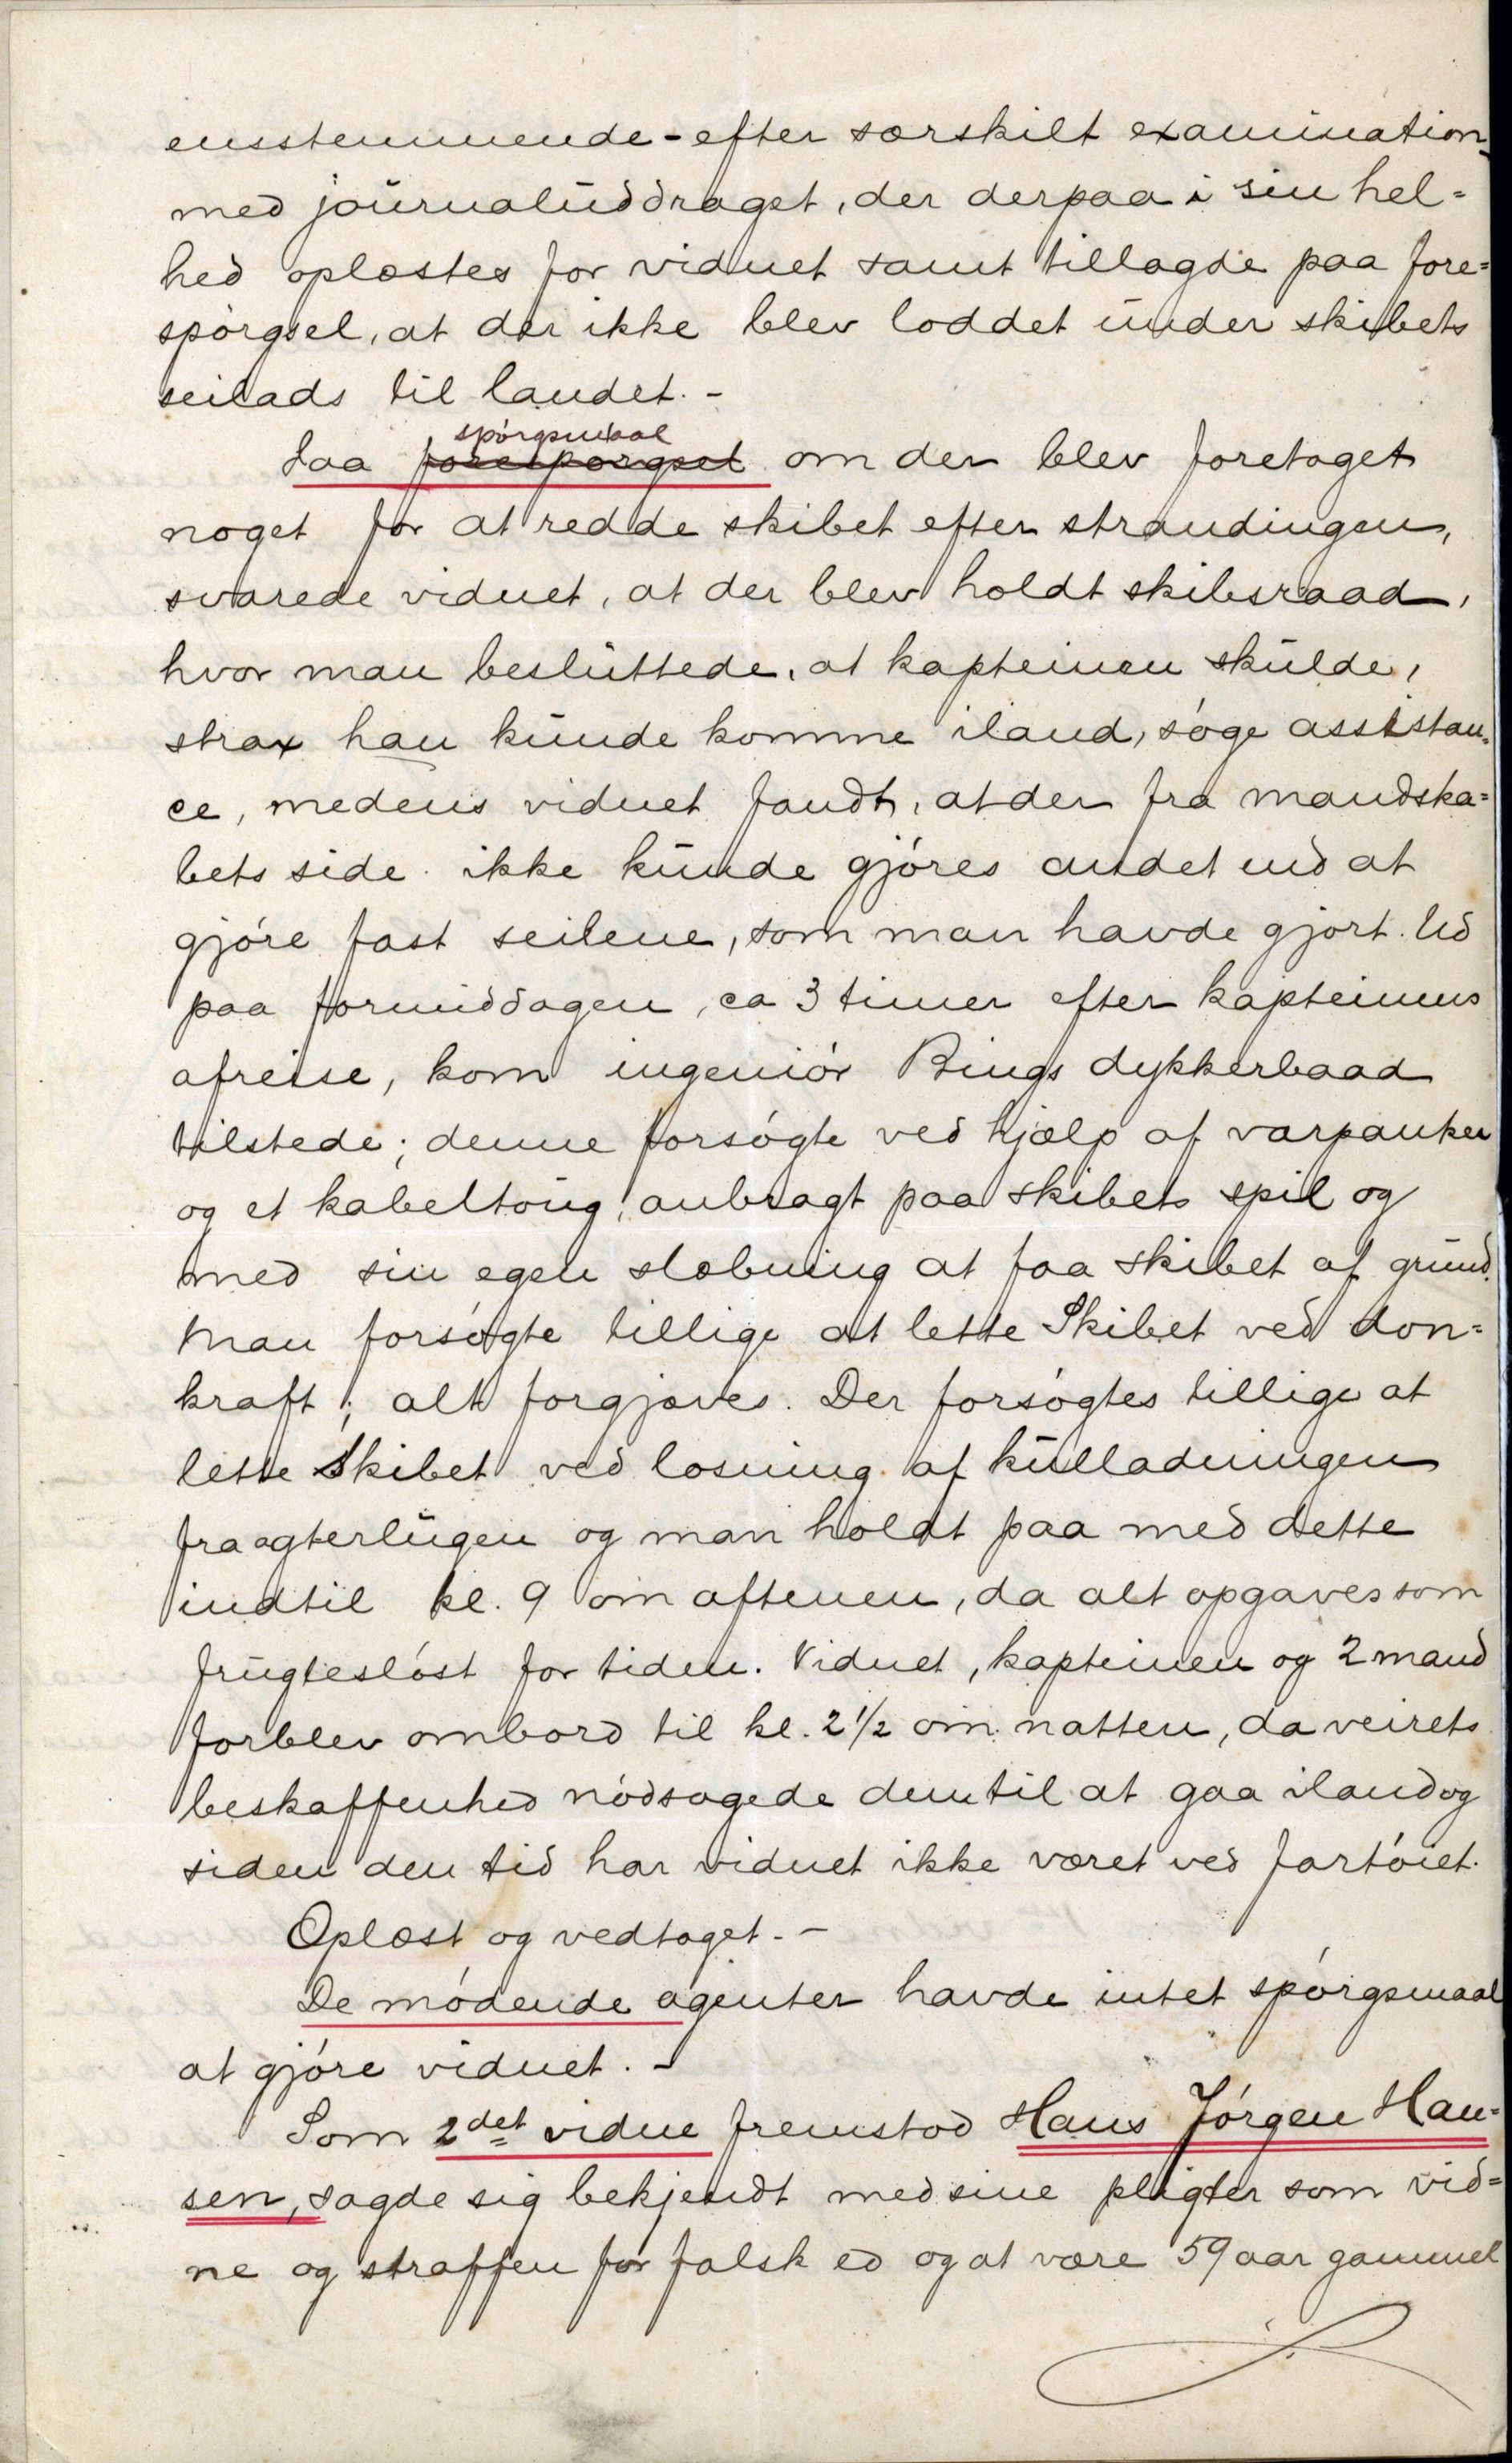 ensstemmende - efter særskilt examination -
med journaluddraget, der derpaa i sin hel=
hed oplæstes for vidnet samt tillagde paa fore=
spörgsel, at der ikke blev loddet under skibets
seilads til landet. -
spörgsmaal
Paa forespørgsel om der blev foretaget
noget for at redde skibet efter strandingen,
svarede vidnet, at der blev holdt skibsraad,
hvor man besluttede, at kapteinen skulde,
strax han kunde komme iland, söge assistan=
ce, medens vidnet fandt, at der fra mandska=
bets side ikke kunde gjöres andet end at
gjöre fast seilene, som man havde gjort. Ud
paa formiddagen, ca 3 timer efter kapteinens
afreise, kom ingeniör Rings dykkerbaad
tilstede; denne forsögte ved hjælp af varpanker
og et kabeltoug, anbragt paa skibets spil og
med sin egen slæbning at faa skibet af grund.
Man forsögte tillige at lette Skibet ved don=
kraft; alt forgjæves. Der forsögtes tillige at
lette Skibet ved losning af kulladningen
fra agterlugen og man holdt paa med dette
indtil kl. 9 om aftenen, da alt opgaves som
frugteslöst for tiden. Vidnet, kapteinen og 2 mand
forblev ombord til kl. 2 1/2 om natten, da veirets
beskaffenhed nödsagede dem til at gaa iland og
siden den tid har vidnet ikke været ved fartöiet.
Oplæst og vedtaget. -
De mödende agenter havde intet spörgsmaal
at gjöre vidnet. -
Som 2det vidne fremstod Hans Jörgen Han=
sen, sagde sig bekjendt med sine pligter som vid=
ne og straffen for falsk ed og at være 59 aar gammel